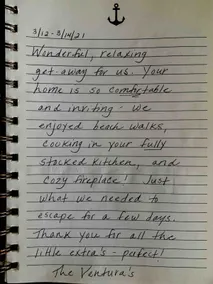 3/12 - 3/14/21
Wonderful, relaxing
get-away for us. Your
home is so comfortable
and inviting - we
enjoyed beach walks,
cooking in your fully
stocked kitchen, and
cozy fireplace! Just
what we needed to
escape for a few days.
Thank you for all the
little extra's - perfect!
The Ventura's